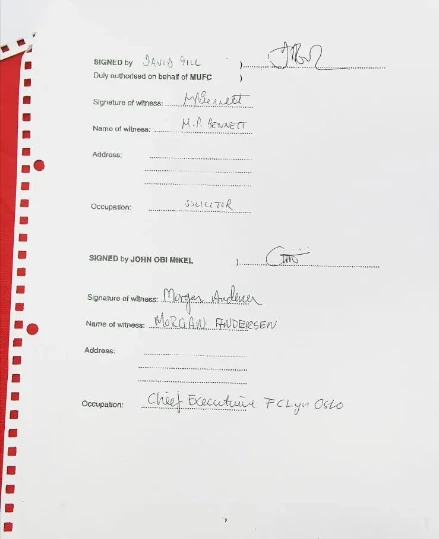 SIGNED by DAVID GILL )
Duly authorised on behalf of MUFC )
Signature of witness: MPBennett
Name of witness: M.P. BENNETT
Address:
Occupation: SOLICITOR
SIGNED by JOHN OBI MIKEL )
Signature of witness: Morgan Andersen
Name of witness: MORGAN ANDERSEN
Address:
Occupation: Chief Executive FC Lyn Oslo